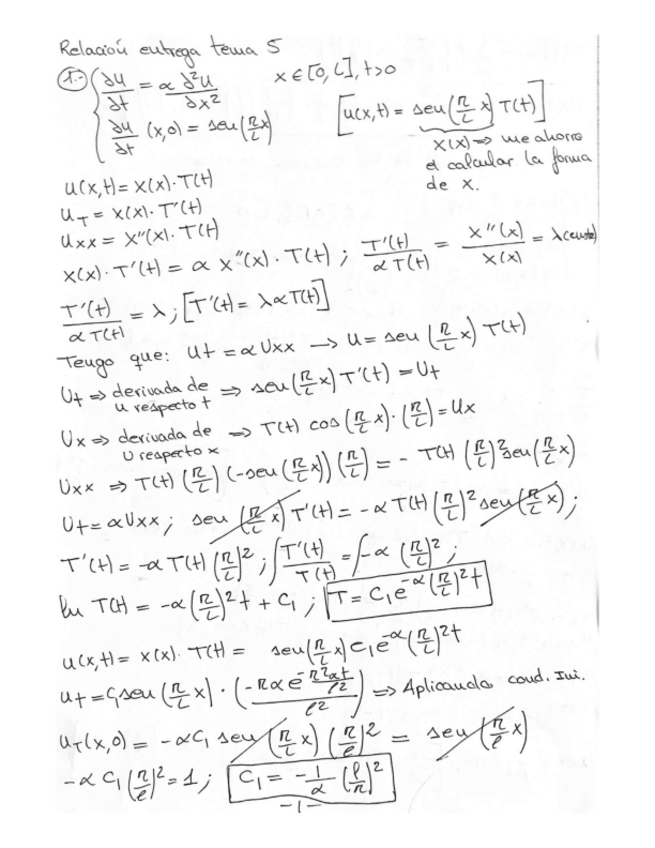 Relación entrega tema 5
1.- { ∂u/∂t = α ∂²u/∂x²   x ∈ [0, L], t>0
∂u/∂t (x,0) = sen(π/L x)   [u(x,t) = sen(π/L x) T(t)]
X(x) ⇒ me ahorro
el calcular la forma
de x.
u(x,t) = X(x)·T(t)
u_T = X(x)·T'(t)
u_xx = X''(x)·T(t)
X(x)·T'(t) = α X''(x)·T(t) ; T'(t)/αT(t) = X''(x)/X(x) = λ(conste)
T'(t)/αT(t) = λ ; [T'(t) = λαT(t)]
Tengo que: Ut = αUxx → U = sen(π/L x) T(t)
Ut ⇒ derivada de u respecto t ⇒ sen(π/L x) T'(t) = Ut
Ux ⇒ derivada de U respecto x ⇒ T(t) cos(π/L x)·(π/L) = Ux
Uxx ⇒ T(t) (π/L) (-sen(π/L x)) (π/L) = - T(t) (π/L)² sen(π/L x)
Ut = αUxx ; sen(π/L x) T'(t) = -α T(t) (π/L)² sen(π/L x) ;
T'(t) = -α T(t) (π/L)² ; ∫ T'(t)/T(t) = ∫ -α (π/L)² ;
ln T(t) = -α(π/L)² t + C₁ ; T = C₁e^{-α(π/L)²t}
u(x,t) = X(x)·T(t) = sen(π/L x) C₁e^{-α(π/L)²t}
ut = C₁sen(π/L x)·(-παe^{-π²αt/ℓ²}/ℓ²) ⇒ Aplicando cond. Ini.
u_T(x,0) = -αC₁ sen(π/L x) (π/ℓ)² = sen(π/ℓ x)
-α C₁(π/ℓ)² = 1 ; C₁ = -1/α (ℓ/π)²
-1-